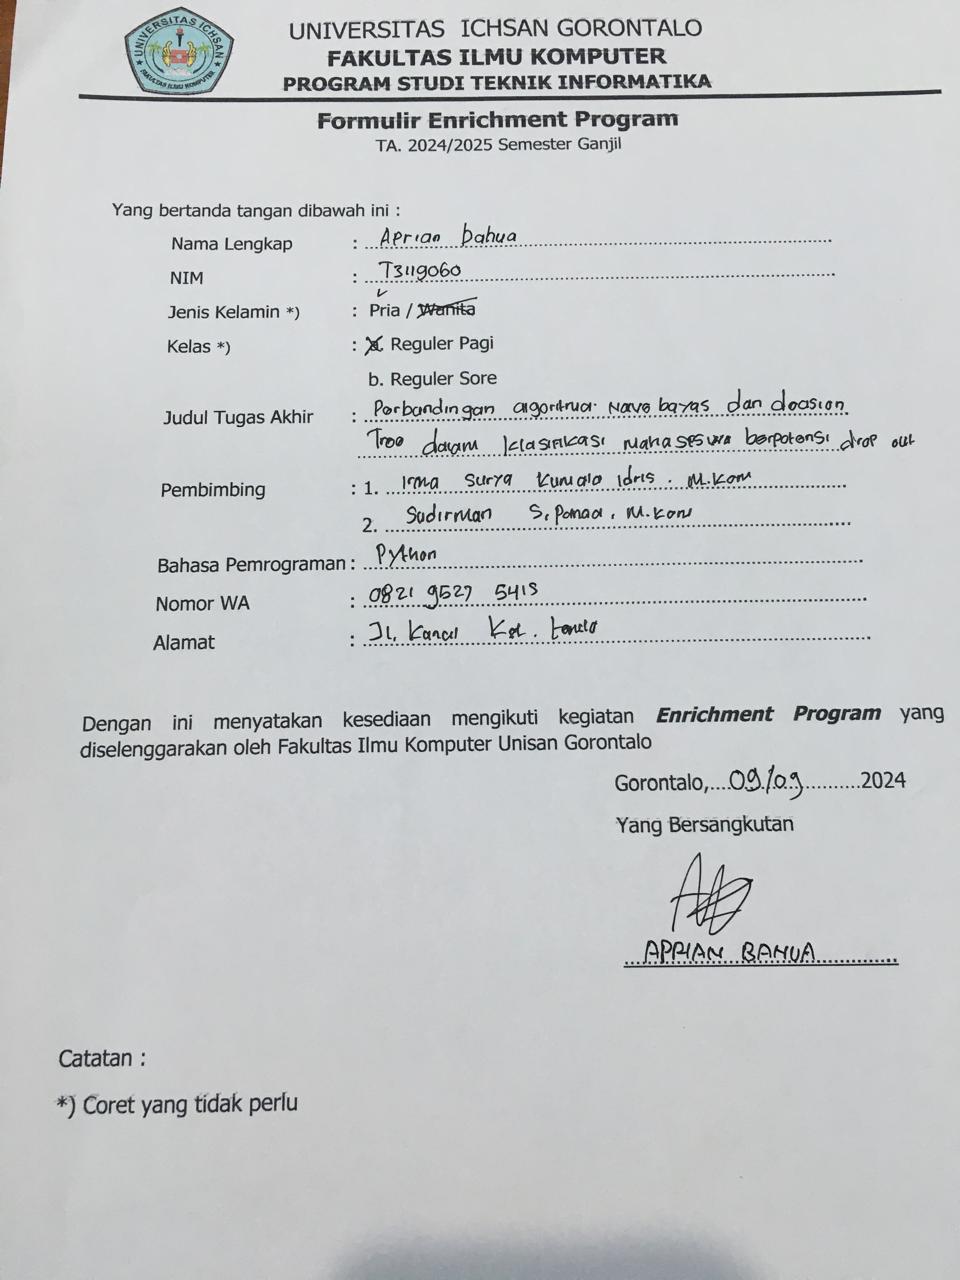 UNIVERSITAS ICHSAN
FAKULTAS ILMU KOMPUTER
UNIVERSITAS ICHSAN GORONTALO
FAKULTAS ILMU KOMPUTER
PROGRAM STUDI TEKNIK INFORMATIKA
Formulir Enrichment Program
TA. 2024/2025 Semester Ganjil
Yang bertanda tangan dibawah ini :
Nama Lengkap : Aprian bahua
NIM : T3119060
Jenis Kelamin *) : Pria / Wanita
Kelas *) : a. Reguler Pagi
b. Reguler Sore
Judul Tugas Akhir : Perbandingan algoritma naive bayes dan decision
Tree dalam klasifikasi mahasiswa berpotensi drop out
Pembimbing : 1. Irma Surya Kumala Idris. M.Kom
2. Sudirman S. Panna, M.Kom
Bahasa Pemrograman : Python
Nomor WA : 0821 9527 5415
Alamat : Jl. Kancil Kel.
Dengan ini menyatakan kesediaan mengikuti kegiatan Enrichment Program yang
diselenggarakan oleh Fakultas Ilmu Komputer Unisan Gorontalo
Gorontalo,....09/09...........2024
Yang Bersangkutan
APRIAN BAHUA
Catatan :
*) Coret yang tidak perlu